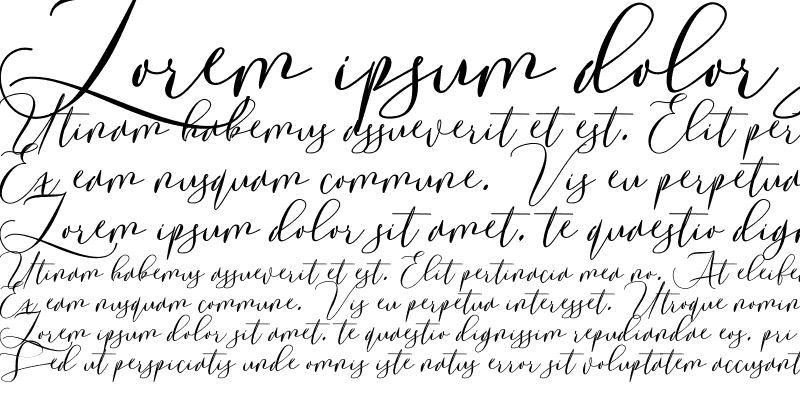 Lorem ipsum dolor
Utinam habemus assueverit et est. Elit per
Ex eam nusquam commune. Vis eu perpetua
Lorem ipsum dolor sit amet. te quaestio dign
Utinam habemus assueverit et est. Elit pertinacia mea no. At eleife
Ex eam nusquam commune. Vis eu perpetua interesset. Utroque nomin
Lorem ipsum dolor sit amet. te quaestio dignissim repudiandae eos. pri
Sed ut perspiciatis unde omnis iste natus error sit voluptatem accusant